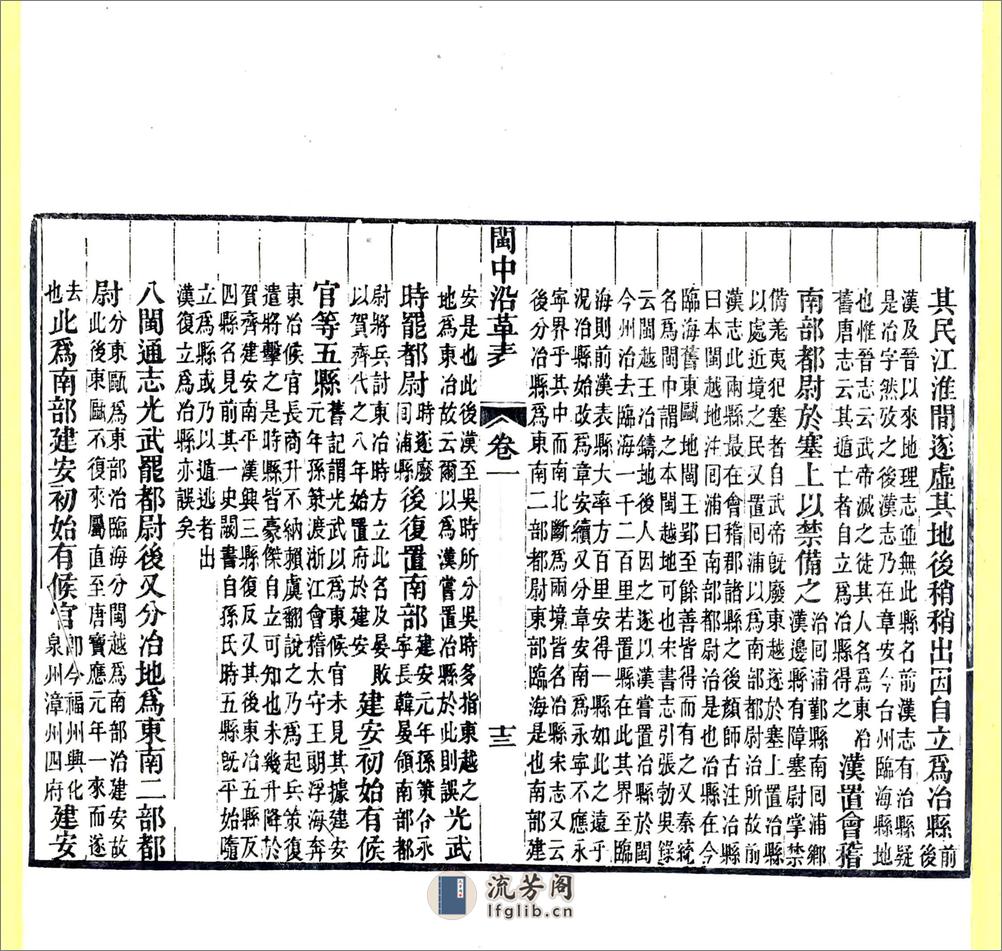 其民江淮閒逐虛其地後稍稍出因自立爲冶縣前
後
漢及晉以來地理志並無此縣名前漢志有冶縣疑
是冶字然攷之後漢志乃在章安今台州臨海縣地
也惟晉志云武帝滅之徙其人名爲東冶
舊唐志云其遁亡者自立爲冶縣得之
漢置會稽
南部都尉於塞上以禁備之
冶回浦鄞縣南回浦鄉
漢邊縣有障塞尉掌禁
僃羗夷犯塞者自武帝旣廢東越逐於塞上置回浦縣
以處近境之民又置回浦以爲南部都尉治所故前
漢志此兩縣最在會稽郡諸縣之後顏師古注冶縣
曰本閩越地注回浦曰南部都尉治是也古冶縣在今
臨海舊東甌地閩王郢至餘善皆得而有之又秦統
名爲閩中胡謂之本閩越地可也宋書志引張勃吳錄
云閩越王冶鑄地後人因之遂以漢嘗置冶縣於閩
今州治去臨海一千二百里若置縣在此其界至臨
海則前漢表縣大率方百里安得一縣如此之遠乎
況冶縣始改爲章安續又分章安南爲永寧不應永
寧界乎其中而南北斷爲兩境皆名回浦宋志又云
後分冶縣爲東南二部都尉東部臨海是也南部建
閩中沿革表
卷一
十三
安是也此後漢至吳時所分吳時多指東越之
地爲東冶故云爾以爲漢嘗置冶縣於此則誤
光武
時罷都尉
時遂廢
回浦縣
後復置南部
建安元年孫策令永
寧長韓晏領南部都
尉將兵討東冶時方立此名及晏敗
以賀齊代之八年始置府於建安
建安初始有候
官等五縣
舊記謂光武以爲東候官未見其據建安
元年孫策渡浙江會稽太守王朗浮海奔
東冶候官長商升不納賴虞翻說之乃爲起兵策復
遣將擊之是時縣皆豪傑自立可知也未幾升降於
賀齊建安南平漢興三縣復反又其後東冶五縣
四縣名見前其一史闕書自孫氏時五縣旣平始隨
立爲縣或乃以遁逃者出
漢復立爲冶縣亦誤矣
八閩通志光武罷都尉後又分冶地爲東南二部都
尉
分東甌爲東部治臨海分閩越爲南部治建安故
此後東甌不復來屬直至唐寶應元年一來而遂
去
也
此爲南部建安初始有候官
卽今福州興化
泉州漳州四府
建安
流芳阁
lfglib.cn